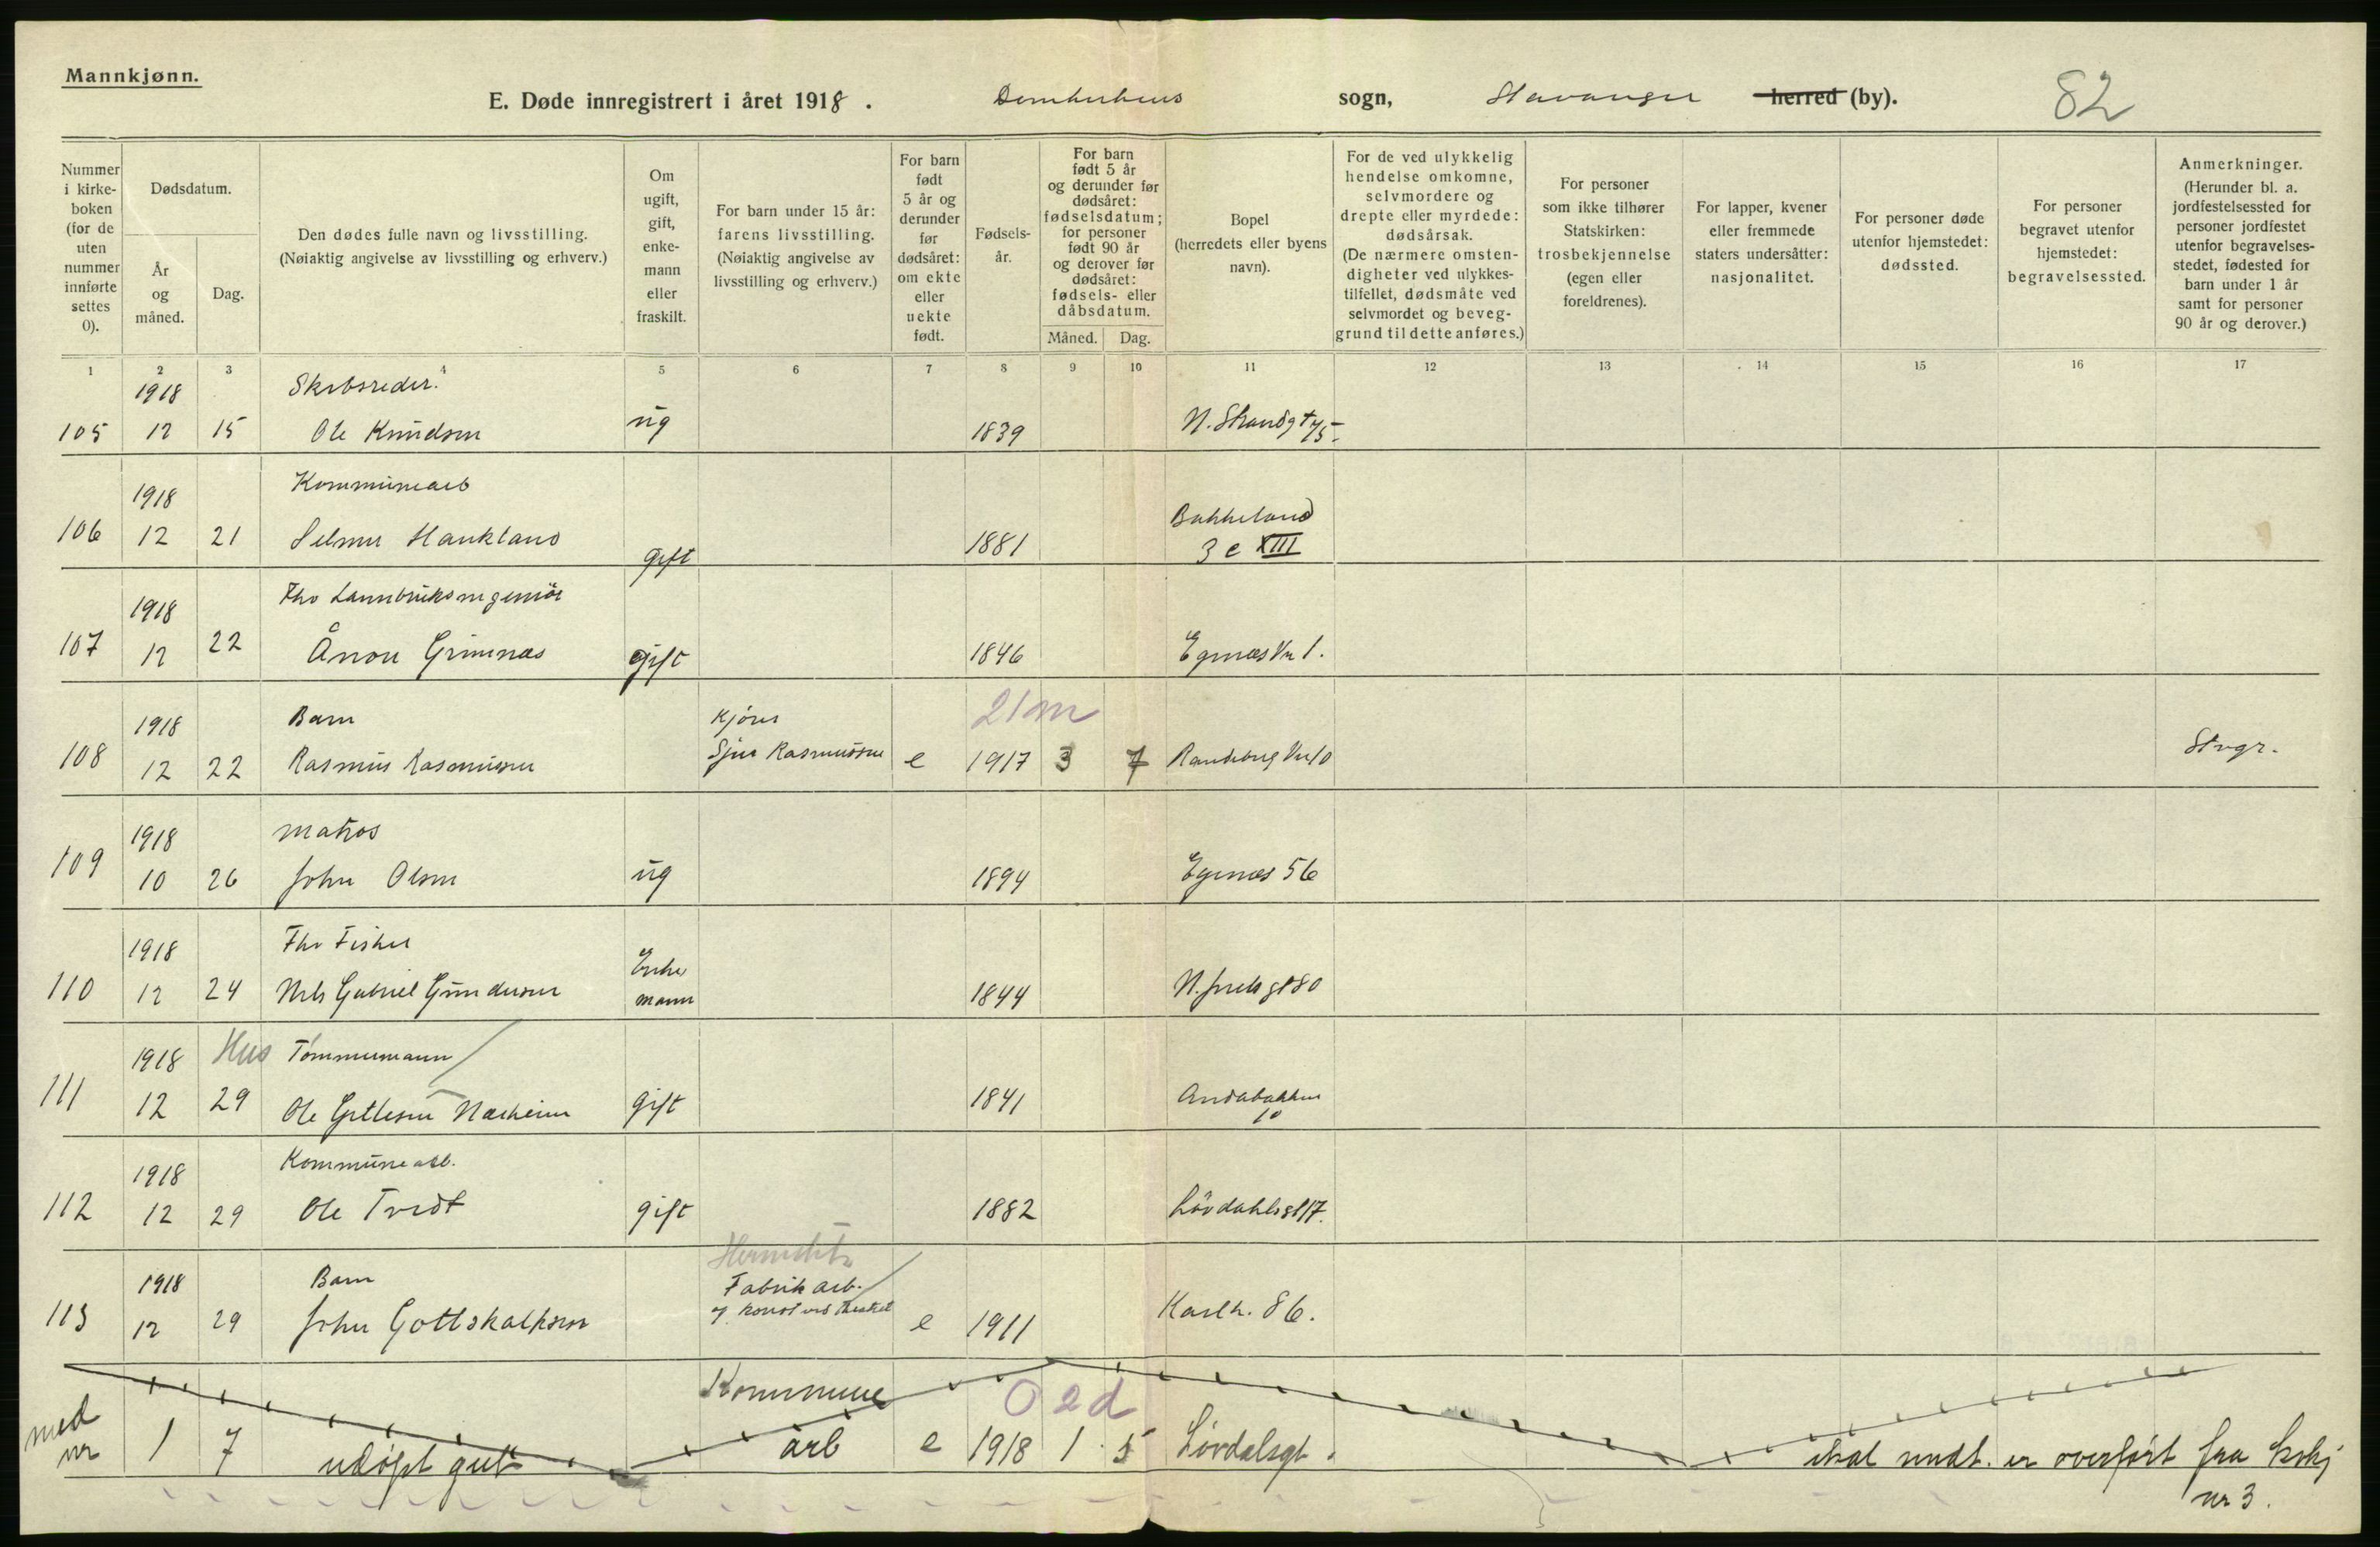 Mannkjønn.
E. Døde innregistrert i året 1918. Domkirkens sogn, Stavanger herred (by). 82
Nummer i kirke-boken (for de uten nummer innførte settes 0).
Dødsdatum.
År og måned.
Dag.
Den dødes fulle navn og livsstilling.
(Nøiaktig angivelse av livsstilling og erhverv.)
Om ugift, gift, enke-mann eller fraskilt.
For barn under 15 år: farens livsstilling.
(Nøiaktig angivelse av livsstilling og erhverv.)
For barn født 5 år og derunder før dødsåret: om ekte eller uekte født.
Fødsels-år.
For barn født 5 år og derunder før dødsåret: fødselsdatum; for personer født 90 år og derover før dødsåret: fødsels- eller dåbsdatum.
Måned. Dag.
Bopel (herredets eller byens navn).
For de ved ulykkelig hendelse omkomne, selvmordere og drepte eller myrdede: dødsårsak.
(De nærmere omsten-digheter ved ulykkes-tilfellet, dødsmåte ved selvmordet og beveg-grund til dette anføres.)
For personer som ikke tilhører Statskirken: trosbekjennelse (egen eller foreldrenes).
For lapper, kvener eller fremmede staters undersåtter: nasjonalitet.
For personer døde utenfor hjemstedet: dødssted.
For personer begravet utenfor hjemstedet: begravelsessted.
Anmerkninger.
(Herunder bl. a. jordfestelsessted for personer jordfestet utenfor begravelses-stedet, fødested for barn under 1 år samt for personer 90 år og derover.)
1 2 3 4 5 6 7 8 9 10 11 12 13 14 15 16 17
1918 Skibsreder.
105 12 15 Ole Knudsen ug 1839 N. Strandgt 75.
1918 Kommunearb
106 12 21 Selmer Haukland gift 1881 Bakkeland
3 e XIII
1918 Fhv
107 12 22 Grimnæs gift 1846 Egenæsvn 1.
1918 Barn Kjører 21 m
108 12 22 Rasmus Rasmussen Rasmussen e 1917 3 7 Randebergvn 10 Stvgr.
1918 Matros
109 10 26 John Olsen ug 1894 Egenæs 56
1918 Fhv Fisker Enke
110 12 24 Nils Gabriel Gundersen mann 1844 80
1918 Hus Tømmermann
111 12 29 Ole Nærheim gift 1841 Andabakken
10
1918 Kommunearb.
112 12 29 Ole Tvedt gift 1882 Løvdahlsgt 17.
Hermetik
1918 Barn Fabrik arb.
113 12 29 John Gottskalksen e 1911 Karlh. 86.
Kommune 0 2 d
med
nr 1 7 udøpt gut arb e 1918 1 5 Løvdalsgt. skal er overført fra
nr 3.